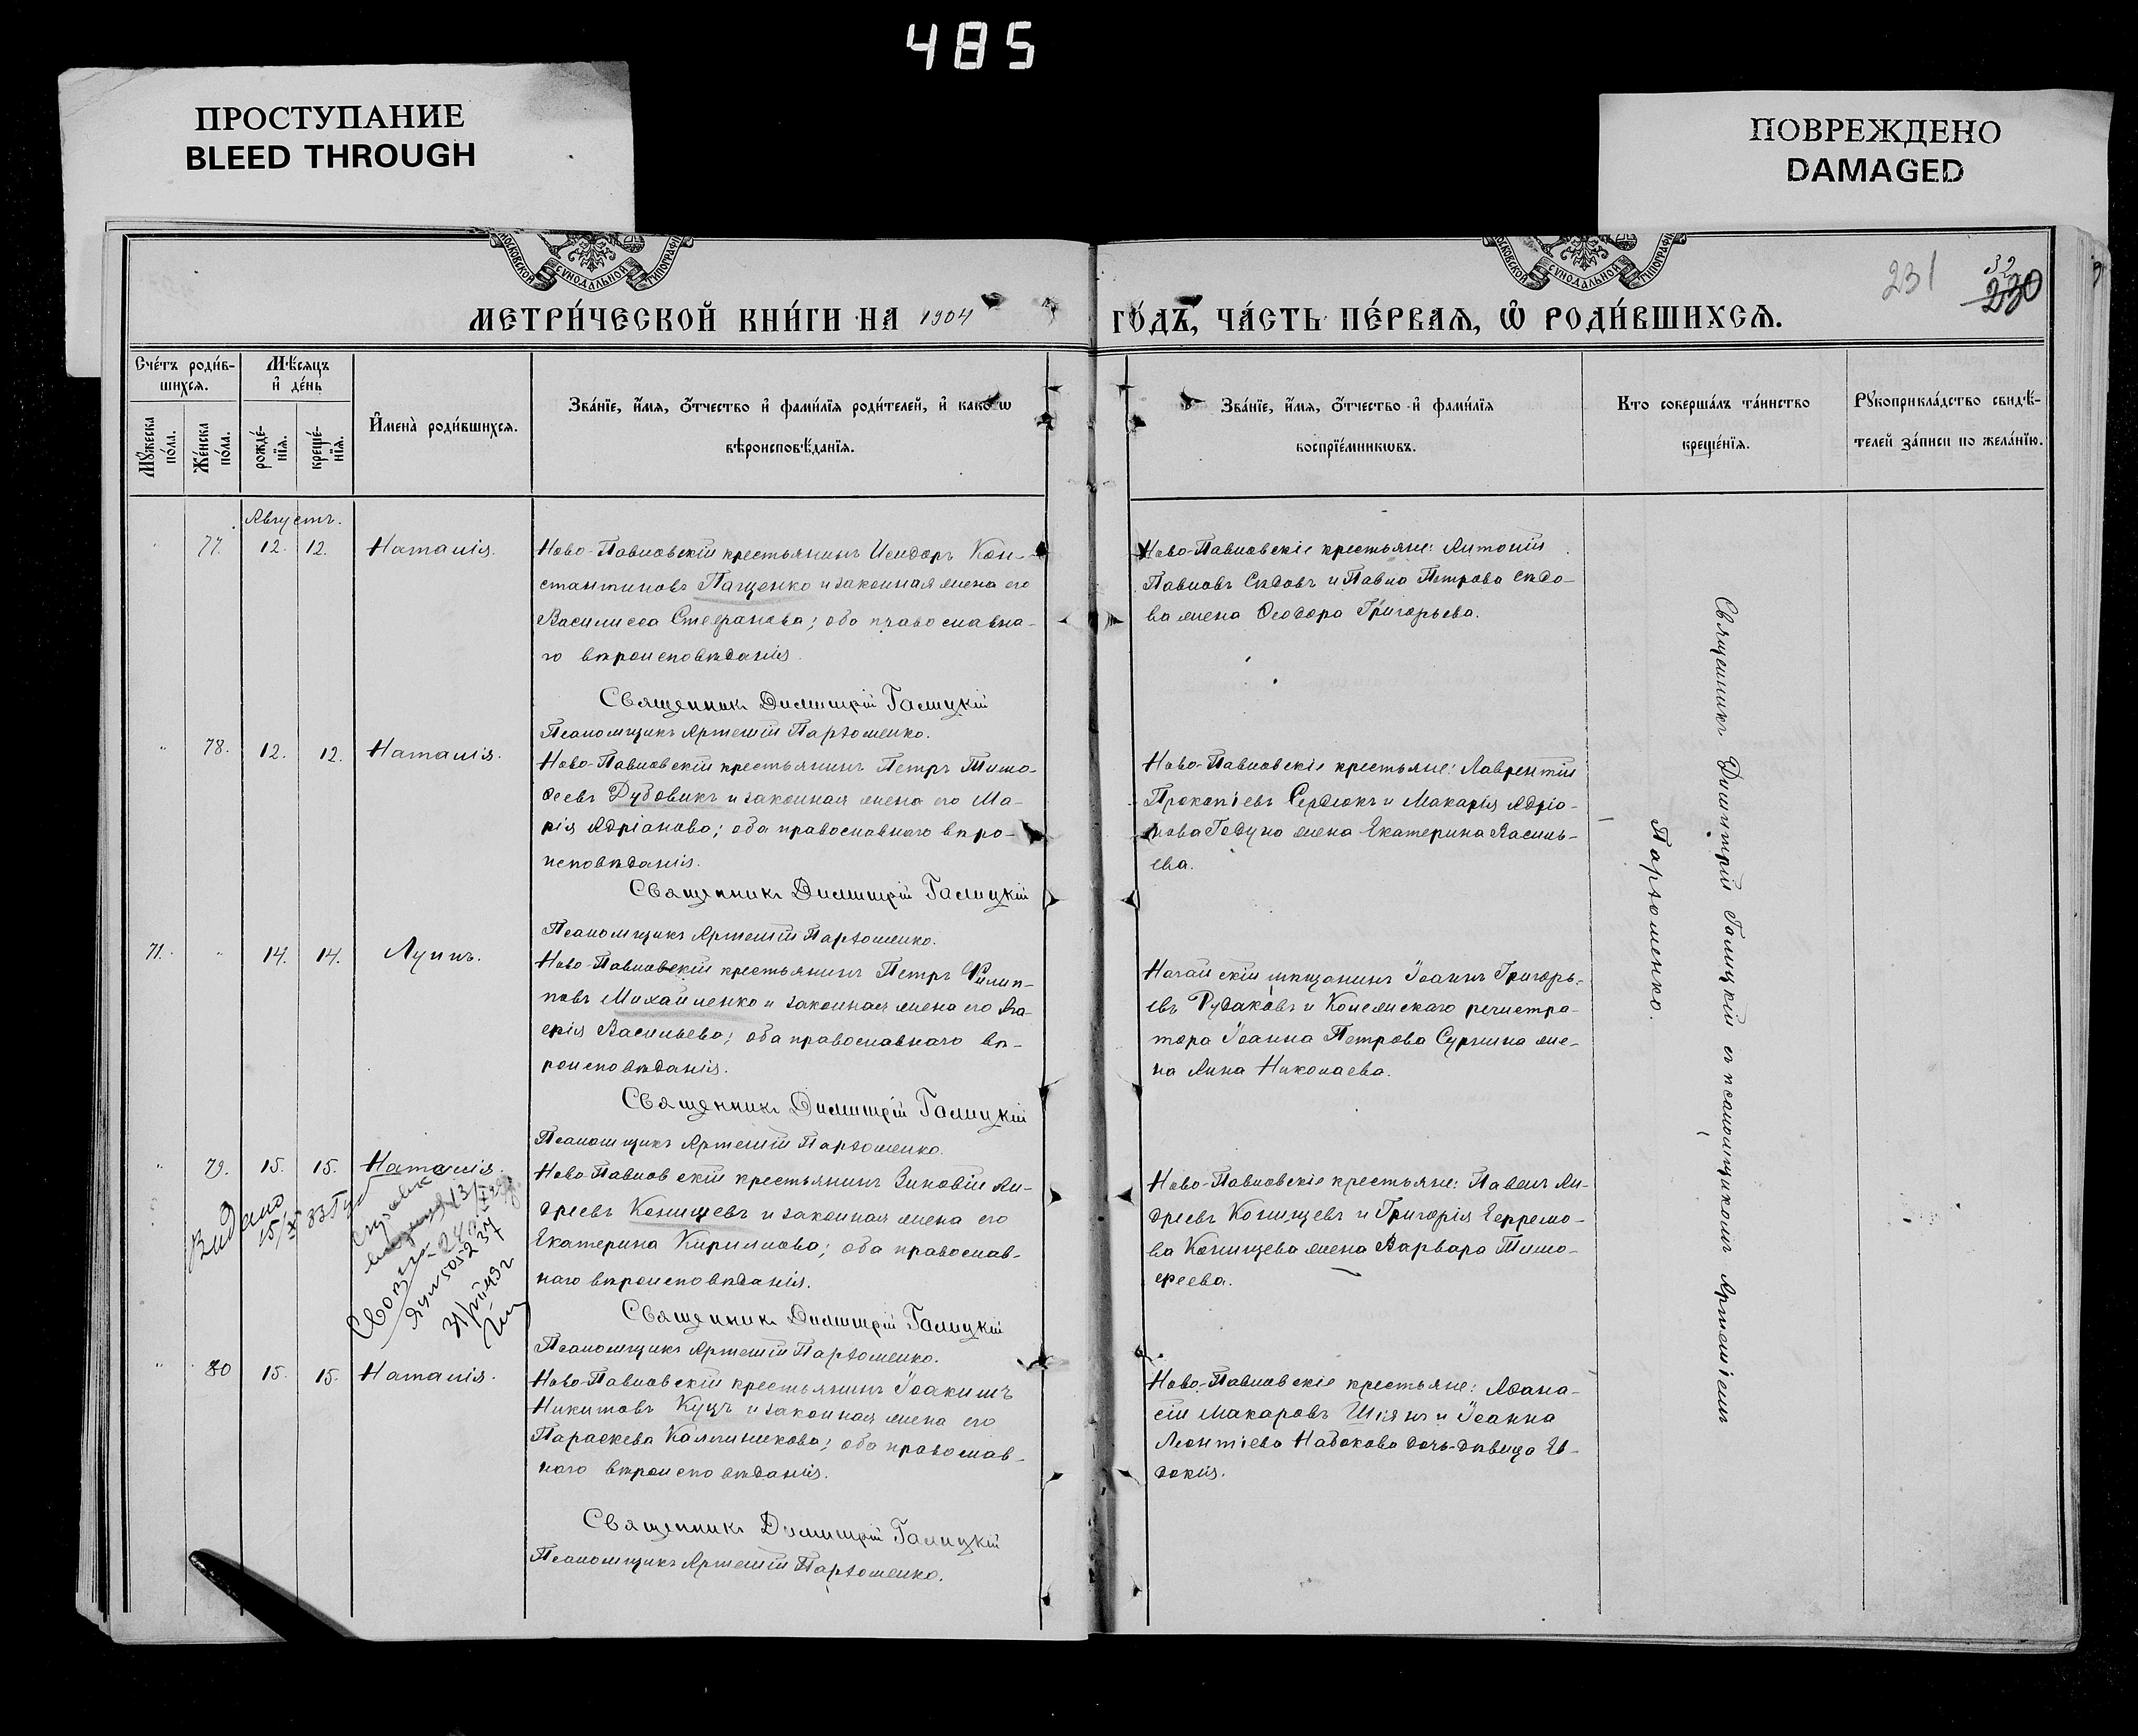 485
ПРОСТУПАНИЕ
BLEED THROUGH
ПОВРЕЖДЕНО
DAMAGED
МОСКОВСКОЙ СѴНОДАЛЬНОЙ ТИПОГРАФІ
МОСКОВСКОЙ СѴНОДАЛЬНОЙ ТИПОГРАФІ
231
32
230
МЕТРИ́ЧЕСКОЙ КНИ́ГИ НА 1904
ГО́ДЪ, ЧА́СТЬ ПЕ́РВАЯ, Ѡ РОДИ́ВШИХСЯ.
Сче́тъ роди́в-
шихся.
Мѣ́сяцъ
и҆ де́нь
Мꙋ́жеска по́ла.
Же́нска по́ла.
рожде́-
нїя.
креще́-
нїя.
И҆мена̀ роди́вшихся.
Зва́нїе, и҆́мя, ѻ҆́тчество и҆ фами́лїя роди́телей, и҆ како́гѡ
вѣроисповѣ́данїя.
Зва́нїе, и҆́мя, ѻ҆́тчество и҆ фами́лїя
воспрїе́мникѡвъ.
Кто̀ соверша́лъ та́инство
креще́нїя.
Рꙋкоприкла́дство свидѣ́-
телей за́писи по жела́нїю.
Августъ.
77. 12. 12. Наталія.
Ново-Павловскій крестьянинъ Исидоръ Кон-
стантиновъ Пащенко и законная жена его
Василисса Стефанова; оба православна-
го вѣроисповѣданія.
Священникъ Димитрій Галицкій
Псаломщикъ Артемій Пархоменко.
Ново-Павловскіе крестьяне: Антоній
Павловъ Сѣдовъ и Павла Петрова Сѣдо-
ва жена Ѳеодора Григорьева.
" 78. 12. 12. Наталія.
Ново-Павловскій крестьянинъ Петръ Тимо-
ѳеевъ Дубовикъ и законная жена его Ма-
рія Адріанова; оба православнаго вѣро-
исповѣданія.
Священникъ Димитрій Галицкій
Псаломщикъ Артемій Пархоменко.
Ново-Павловскіе крестьяне: Лаврентій
Прокопіевъ Сердюкъ и Макарія Адріа-
нова Годуна жена Екатерина Василь-
ева.
71. " 14. 14. Луппъ.
Ново-Павловскій крестьянинъ Петръ Филип-
повъ Михайленко и законная жена его
Васильева; оба православнаго вѣ-
роисповѣданія.
Священникъ Димитрій Галицкій
Псаломщикъ Артемій Пархоменко.
мѣщанинъ Іоаннъ Григорь-
евъ Рудаковъ и Колежскаго регистра-
тора Іоанна Петрова жe-
на Анна Николаева.
" 79. 15. 15. Наталія.
Видано
Ново-Павловскій крестьянинъ Зиновій Ан-
дреевъ Конищевъ и законная жена его
Екатерина Кириллова; оба православ-
наго вѣроисповѣданія.
Священникъ Димитрій Галицкій
Псаломщикъ Артемій Пархоменко.
Ново-Павловскіе крестьяне: Павелъ Ан-
дреевъ Конищевъ и Григорія Ефремо-
ва Конищева жена Варвара Тимо-
феева.
" 80 15. 15. Наталія.
Ново-Павловскій крестьянинъ Іоакимъ
Никитовъ Куцъ и законная жена его
Параскева Каллиникова; оба православ-
наго вѣроисповѣданія.
Священникъ Димитрій Галицкій
Псаломщикъ Артемій Пархоменко.
Ново-Павловскіе крестьяне: Аѳана-
сій Макаровъ и Іоанна
Леонтіева Набокова дочь-дѣвица Ев-
докія.
Священникъ Димитрій Галицкій съ псаломщикомъ Артеміемъ
Пархоменко.